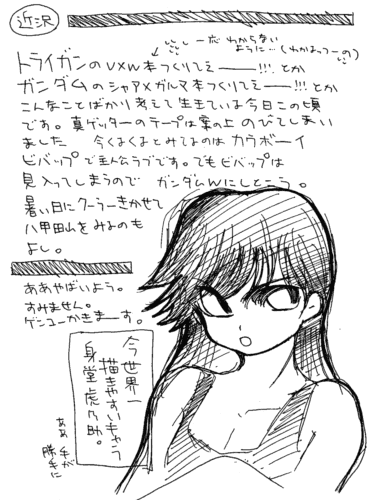 近沢
一応わからない
ように…(わかるっつーの)
トライガンのV×W本つくりてェ———!!! とか
ガンダムのシャア×ガルマ本つくりてェ———!!! とか
こんなことばかり考えて生きている今日この頃
です。真ゲッターのテープは案の上のびてしまい
ました 今くまくまとみてるのはカウボーイ
ビバップで主人公ラブです。でもビバップは
見入ってしまうので ガンダムWにしとこう。
暑い日にクーラーきかせて
八甲田山をみるのも
よし。
ああやばいよう。
すみません。
ゲンコーかきまーす。
今世界一
描きやすいキャラ
身堂虎之助。
ああ 手が
勝手に